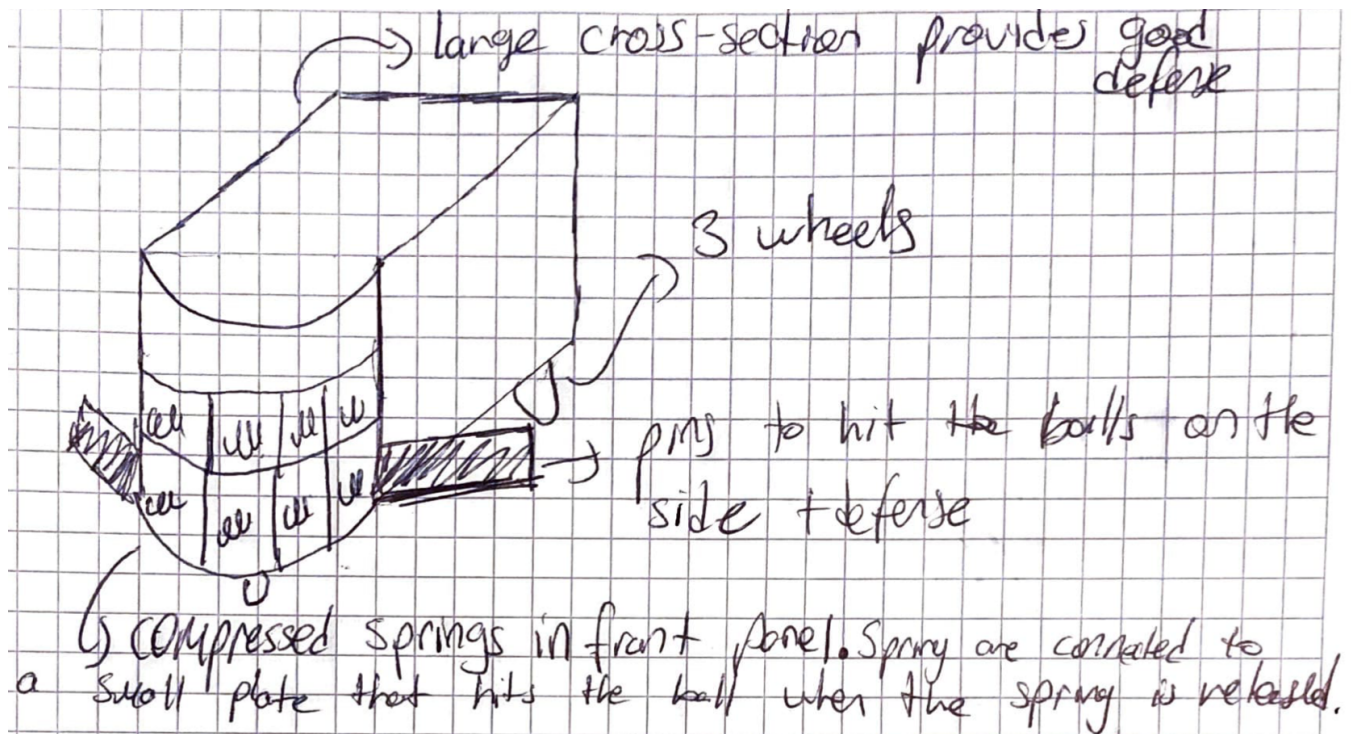 large cross-section provides good
defense
3 wheels
pins to hit the balls on the
side + defense
compressed springs in front panel. Spring are connected to
a small plate that hits the ball when the spring is released.